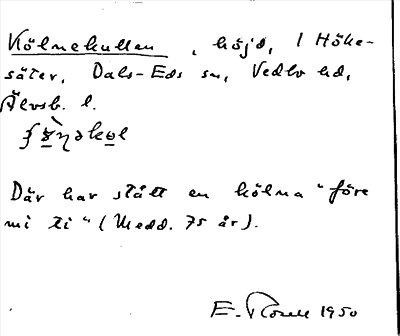 Kölnekullen, höjd, i Höke-
säter, Dals-Eds sn, Vedbo hd,
Älvsb. l.
Där har stått en kölna "före
mi ti" (Medd. 75 år).
E. 1950